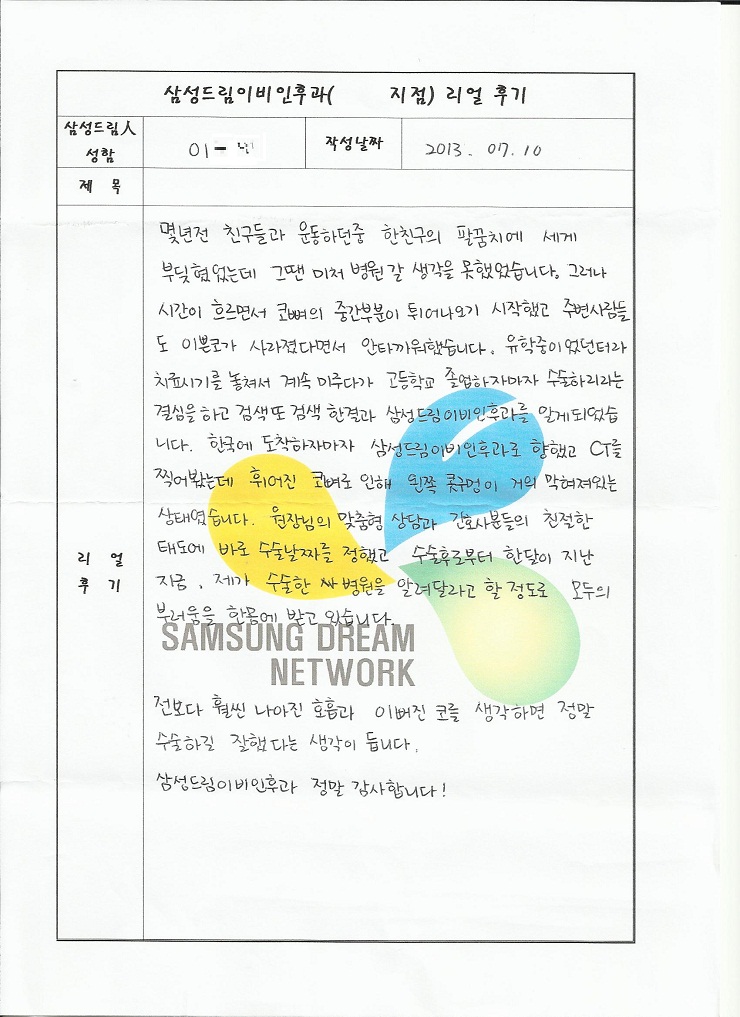 삼성드림이비인후과(      지점) 리얼 후기
삼성드림人 성함
이
작성날짜
2013. 07. 10
제 목
리 얼 후 기
몇년전 친구들과 운동하던중 한친구의 팔꿈치에 세게
부딪혔었는데 그땐 미처 병원갈 생각을 못했었습니다. 그러나
시간이 흐르면서 코뼈의 중간부분이 튀어나오기 시작했고 주변사람들
도 이쁜코가 사라졌다면서 안타까워했습니다. 유학중이었던터라
치료시기를 놓쳐서 계속 미루다가 고등학교 졸업하자마자 수술하리라는
결심을하고 검색또 검색 한결과 삼성드림이비인후과를 알게되었습
니다. 한국에 도착하자마자 삼성드림이비인후과로 향했고 CT를
찍어봤는데 휘어진 코뼈로 인해 왼쪽 콧구멍이 거의 막혀져있는
상태였습니다. 원장님의 맞춤형 상담과 간호사분들의 친절한
태도에 바로 수술날짜를 정했고 수술후로부터 한달이 지난
지금, 제가 수술한 병원을 알려달라고 할 정도로 모두의
부러움을 한몸에 받고 있습니다.
SAMSUNG DREAM
NETWORK
전보다 훨씬 나아진 호흡과 이뻐진 코를 생각하면 정말
수술하길 잘했다는 생각이 듭니다.
삼성드림이비인후과 정말 감사합니다!